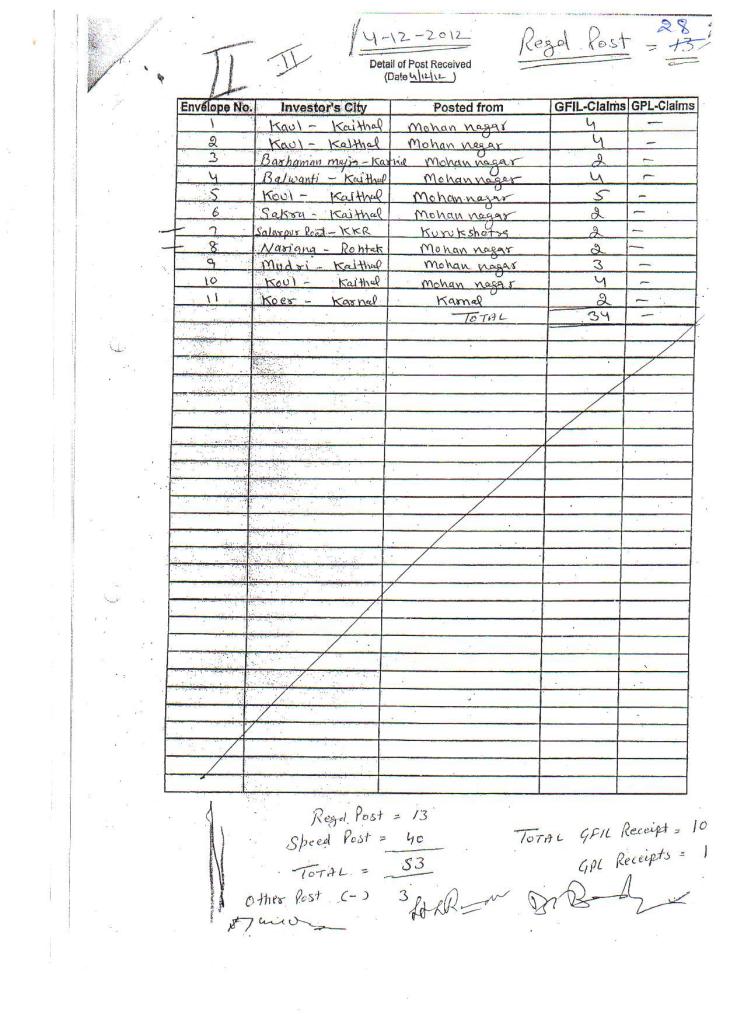 II II 4-12-2012 Regd. Post = 28
13
Detail of Post Received
(Date 4/12/12)
Envelope No. Investor's City Posted from GFIL-Claims GPL-Claims
1 Kaul - Kaithal Mohan nagar 4 -
2 Kaul - Kaithal Mohan nagar 4 -
3 Barhaman majra - Karnal Mohan nagar 2 -
4 Balwanti - Kaithal Mohan nagar 4 -
5 Koul - Kaithal Mohan nagar 5 -
6 Sakra - Kaithal Mohan nagar 2 -
7 Salarpur Road - KKR Kurukshetra 2 -
8 Narigna - Rohtak Mohan nagar 2 -
9 Mudri - Kaithal Mohan nagar 3 -
10 Koul - Kaithal Mohan nagar 4 -
11 Koer - Karnal Karnal 2 -
TOTAL 34 -
Regd. Post = 13
Speed Post = 40
TOTAL = 53
Other Post (-) 3
TOTAL GFIL Receipt = 10
GPL Receipts = 1